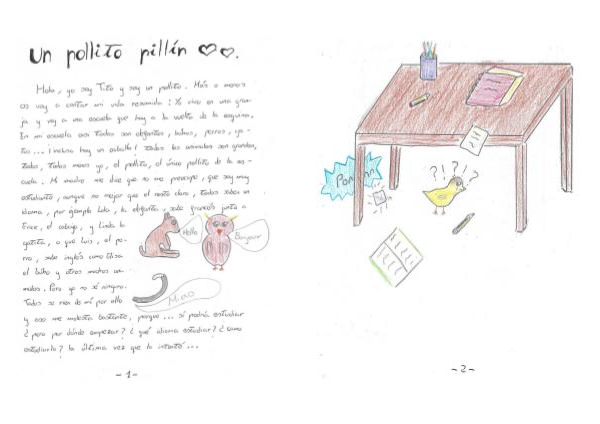 Un pollito pillín ♡♡.
Hola, yo soy Tito y soy un pollito. Más o menos
os voy a contar mi vida resumida: Yo vivo en una gran-
ja y voy a una escuela que hay a la vuelta de la esquina.
En mi escuela casi todos son elefantes, búhos, perros, ga-
tos... ¡incluso hay un caballo! Todos los animales son grandes,
todos, todos menos yo, el pollito, el único pollito de la es-
cuela. Mi madre me dice que no me preocupe, que soy muy
estudiante, aunque no mejor que el resto claro, todos saben un
idioma, por ejemplo Lola, la elefanta, sabe francés junto a
el caballo, y Linda la
gatita, o que Luis, el pe-
rro, sabe inglés como Elisa
el búho y otros muchos ani-
males. Pero yo no sé ninguno.
Todos se ríen de mí por ello
y eso me molesta bastante, porque... sí podría estudiar
¿pero por dónde empezar? ¿qué idioma estudiar? ¿cómo
estudiarlo? la última vez que lo intenté...
Hello
Bonjour
Miao
-1-
?!?!?
-2-